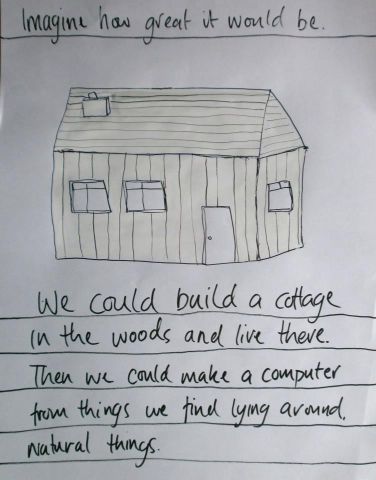 Imagine how great it would be.
We could build a cottage
in the woods and live there.
Then we could make a computer
from things we find lying around.
Natural things.